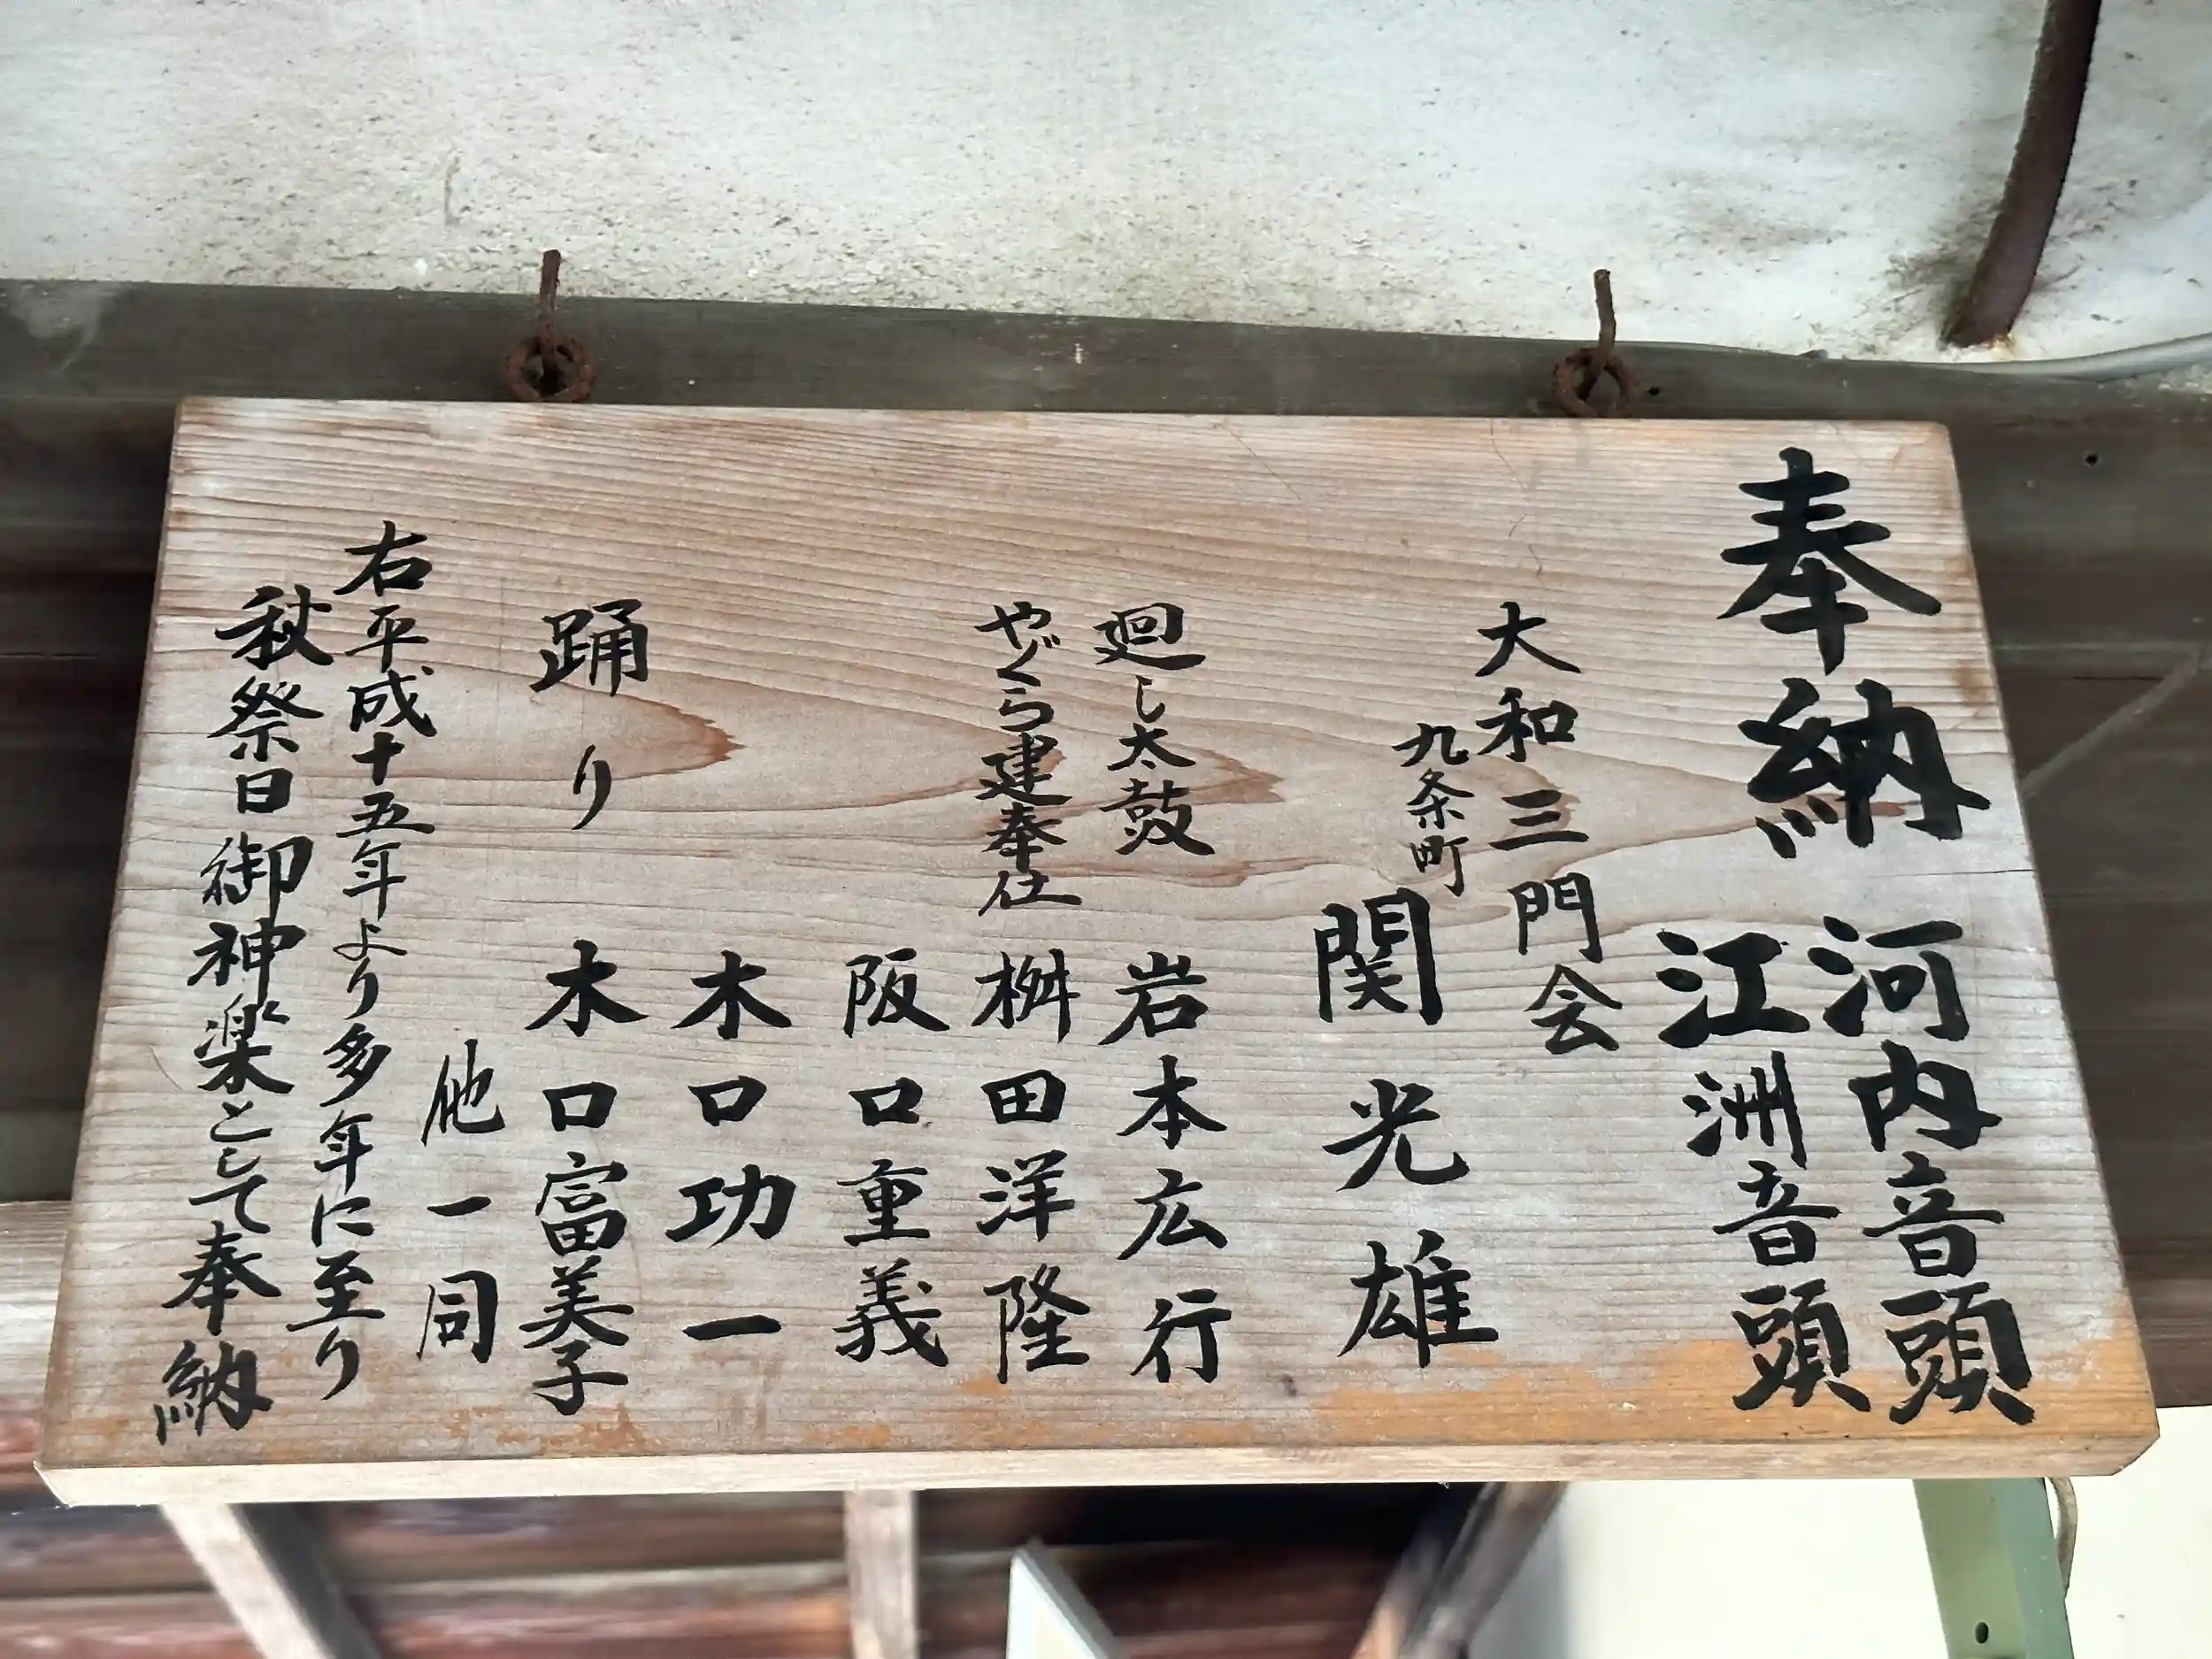 奉納 河内音頭
江洲音頭
大和三門会
九条町 関光雄
廻し太鼓 岩本広行
やぐら建奉仕 桝田洋隆
阪口重義
木口功一
踊り 木口富美子
他一同
右平成十五年より多年に至り
秋祭日御神楽として奉納